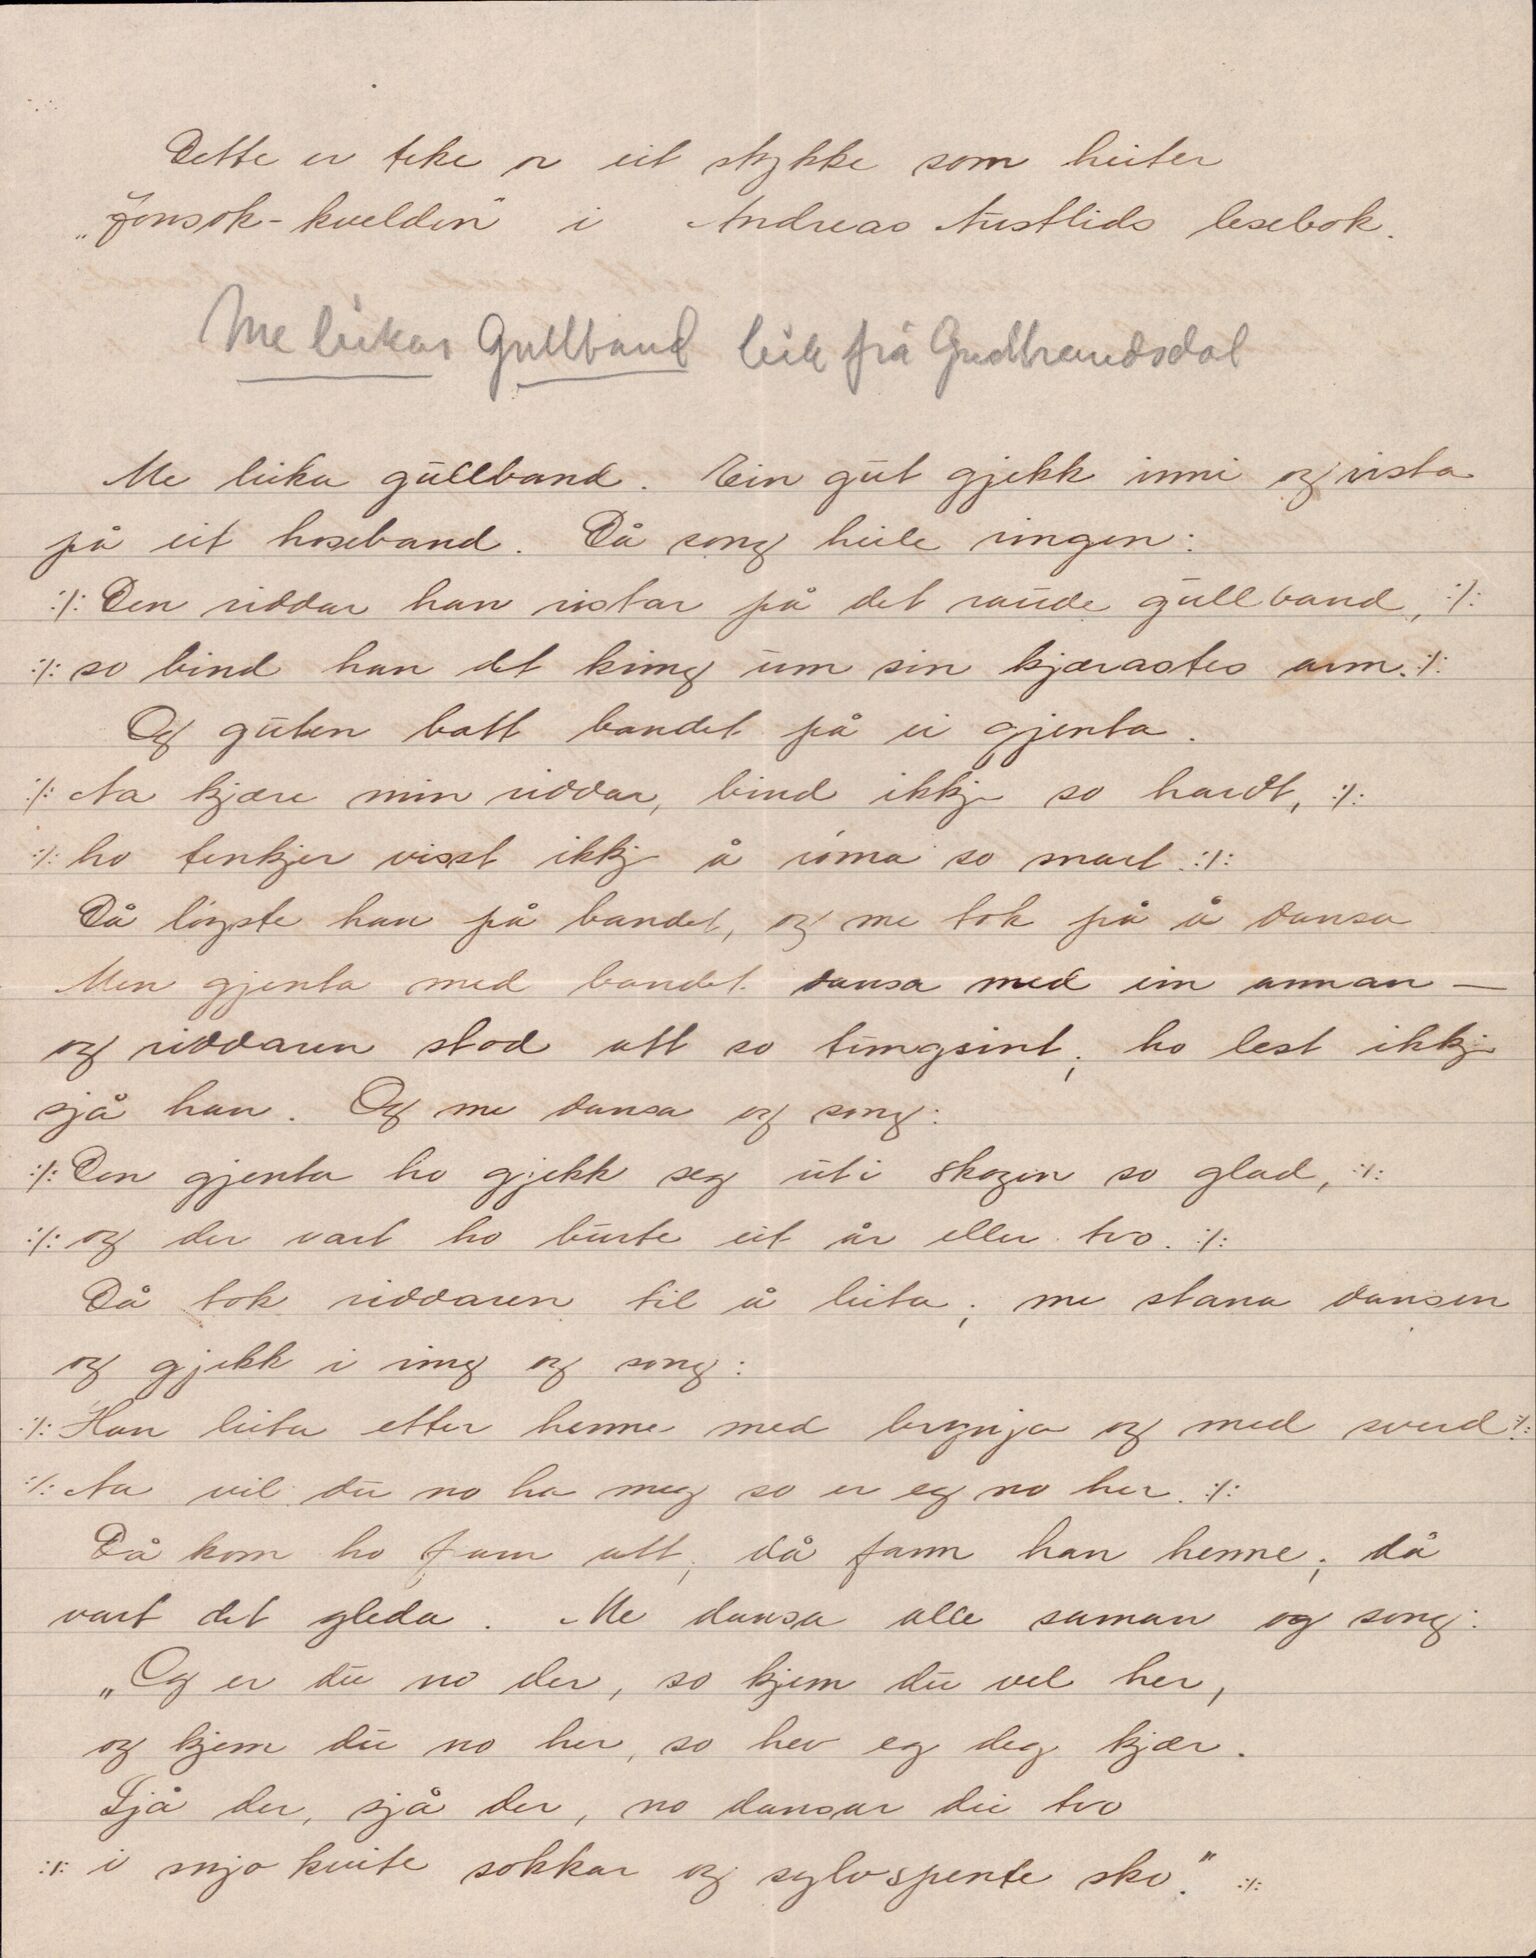 Dette er teke or eit stykke som heiter
„Jonsok-kvelden" i Andreas Austlids lesebok.
Me leikar Gullband leik frå Gudbrandsdal
Me leika gullband. Ein gut gjekk inni og rista
på eit hoseband. Då song heile ringen:
:/: Den riddar han ristar på det raude gullband, :/:
:/: so bind han det kring um sin kjærastes arm. :/:
Og guten batt bandet på ei gjenta.
:/: Aa kjære min riddar, bind ikkje so hardt, :/:
:/: ho tenkjer visst ikkje å röma so snart. :/:
Då löyste han på bandet, og me tok på å dansa
Men gjenta med bandet dansa med ein annan —
og riddaren stod att so tungsint; ho lest ikkje
sjå han. Og me dansa og song:
:/: Den gjenta ho gjekk seg ut i skogen so glad, :/:
:/: og der vart ho burte eit år eller tvo. :/:
Då tok riddaren til å leita; me stana dansen
og gjekk i ring og song:
:/: Han leita etter henne med brynja og med sverd :/:
:/: Aa vil du no ha meg so er eg no her. :/:
Då kom ho fram att, då fann han henne; då
vart det gleda. Me dansa alle saman og song:
„Og er du no der, so kjem du vel her,
og kjem du no her, so hev eg deg kjær.
Sjå der, sjå der, no dansar dei tvo
:/: i snjo kvite sokkar og sylvspente sko." :/: